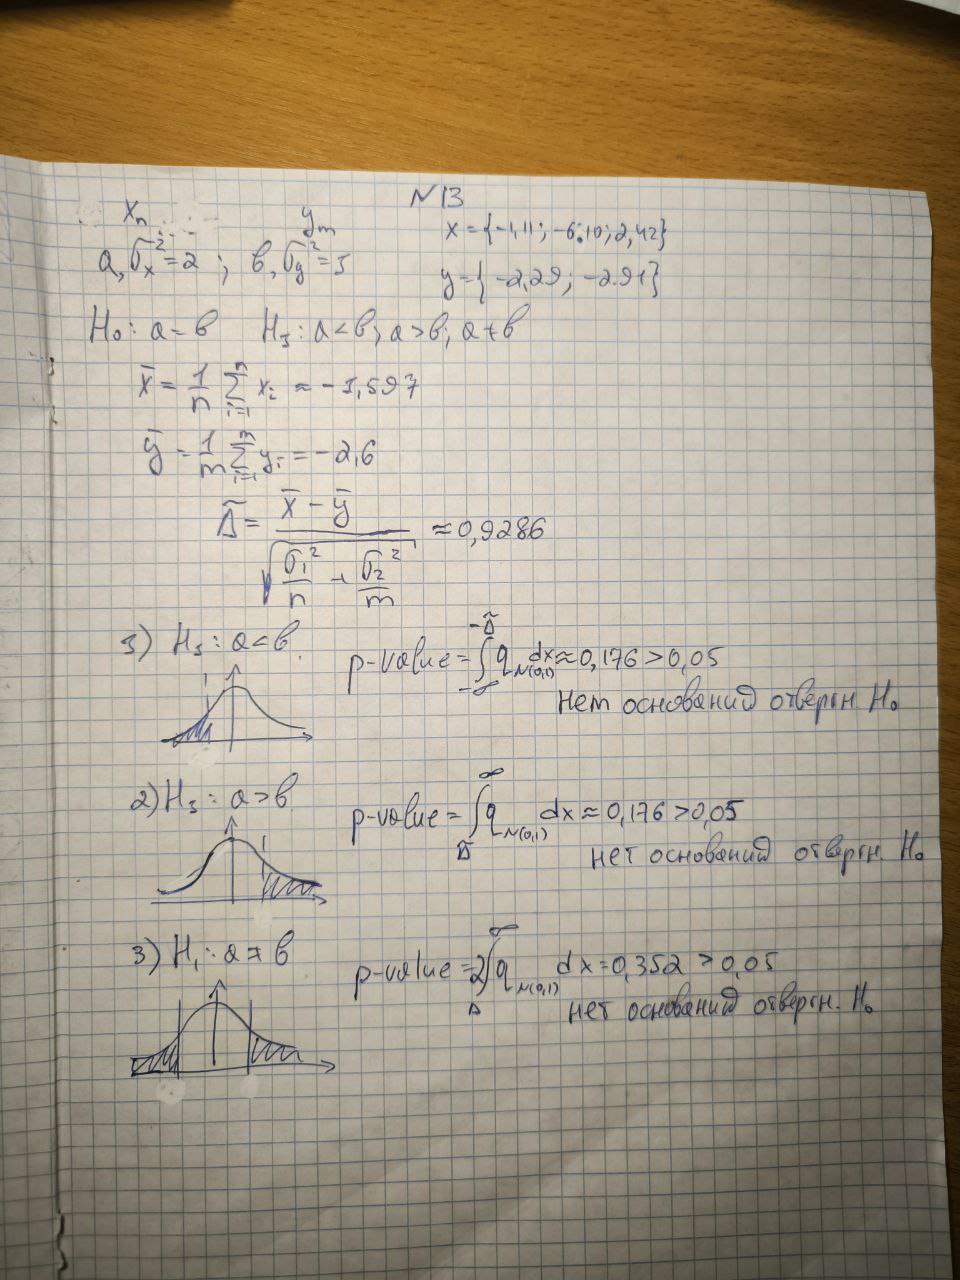 N13
Xn ym
a, σx²=2 ; b, σy²=1
x={-1,11; -6,10; 2,42}
y={-2,29; -2.91}
H₀: a=b H₁: a<b; a>b; a≠b
x̄ = 1/n Σ(i=1..n) xᵢ ≈ -1,597
ȳ = 1/m Σ(i=1..m) yᵢ = -2,6
Δ̃ = (x̄ - ȳ) / √(σ₁²/n + σ₂²/m) ≈ 0,9286
1) H₁: a<b p-value = ∫(-∞..-Δ̃) q N(0,1) dx ≈ 0,176 > 0,05
нет оснований отвергн. H₀
2) H₁: a>b p-value = ∫(Δ̃..∞) q N(0,1) dx ≈ 0,176 > 0,05
нет оснований отвергн. H₀
3) H₁: a≠b p-value = 2∫(Δ..∞) q N(0,1) dx = 0,352 > 0,05
нет оснований отвергн. H₀